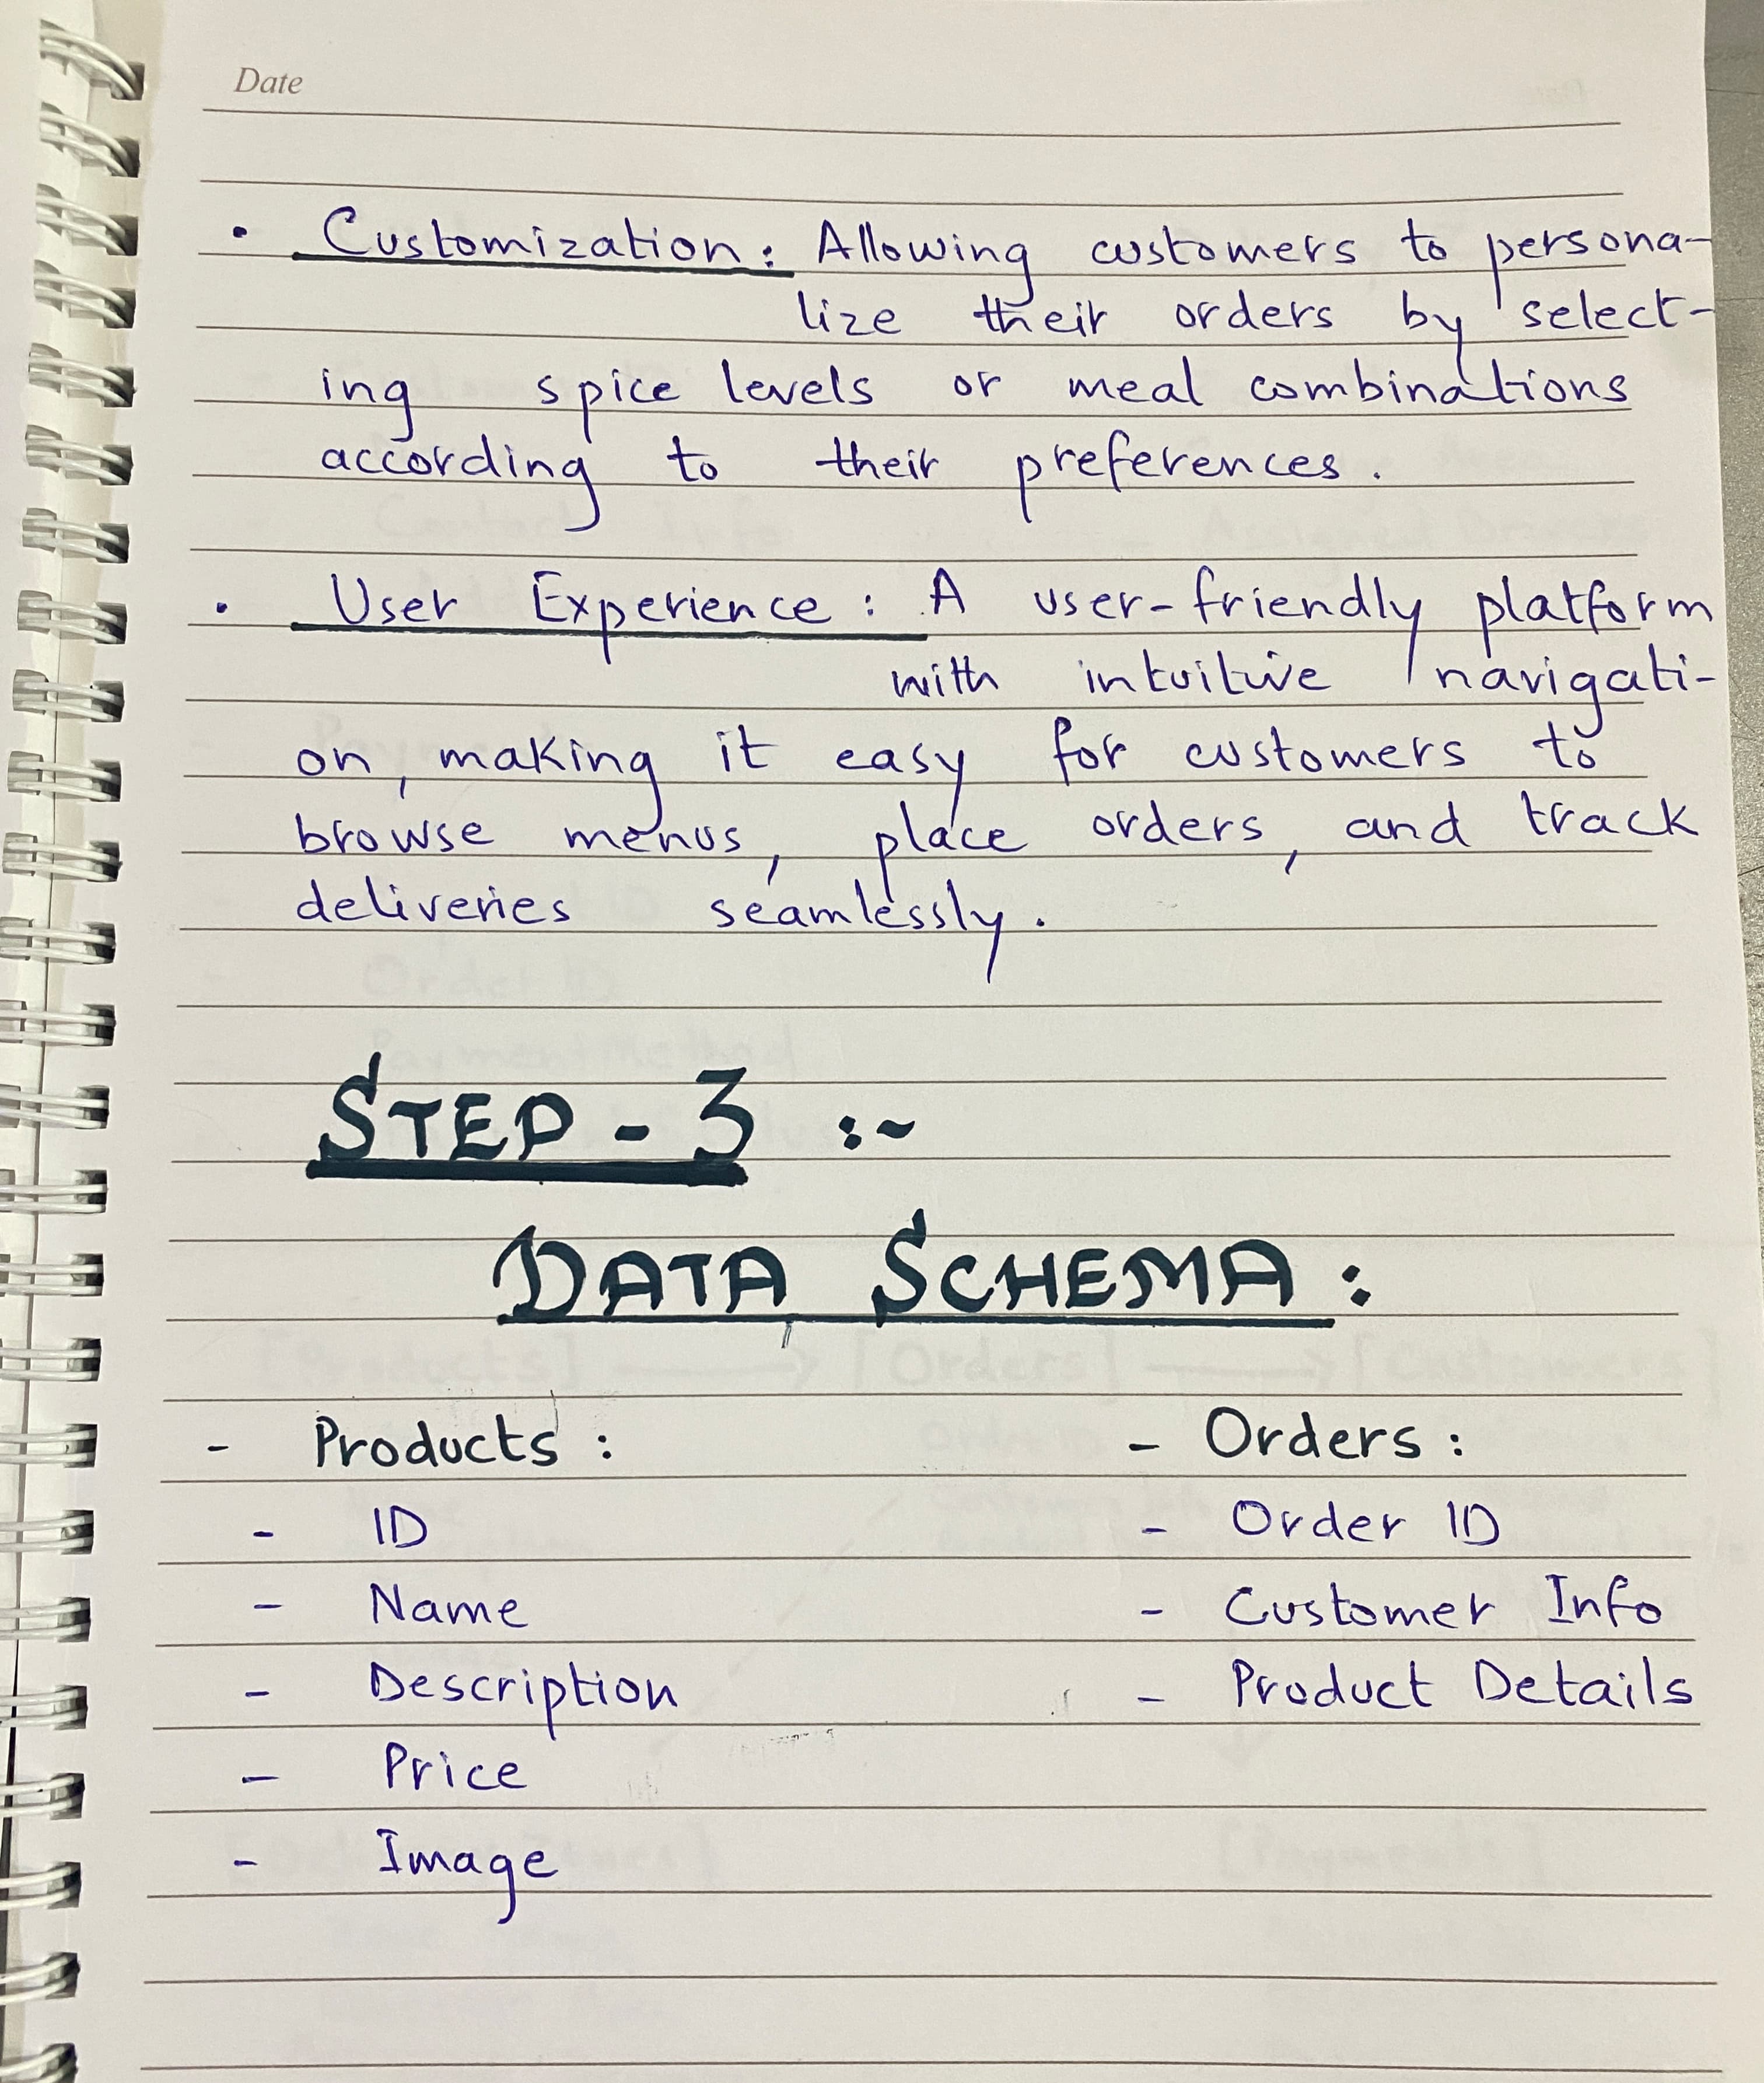 Date
• Customization: Allowing customers to persona-
lize their orders by select-
ing spice levels or meal combinations
according to their preferences.
• User Experience: A user-friendly platform
with intuitive navigati-
on, making it easy for customers to
browse menus, place orders, and track
deliveries seamlessly.
STEP - 3 :-
DATA SCHEMA:
- Products:
- ID
- Name
- Description
- Price
- Image
- Orders:
- Order ID
- Customer Info
- Product Details